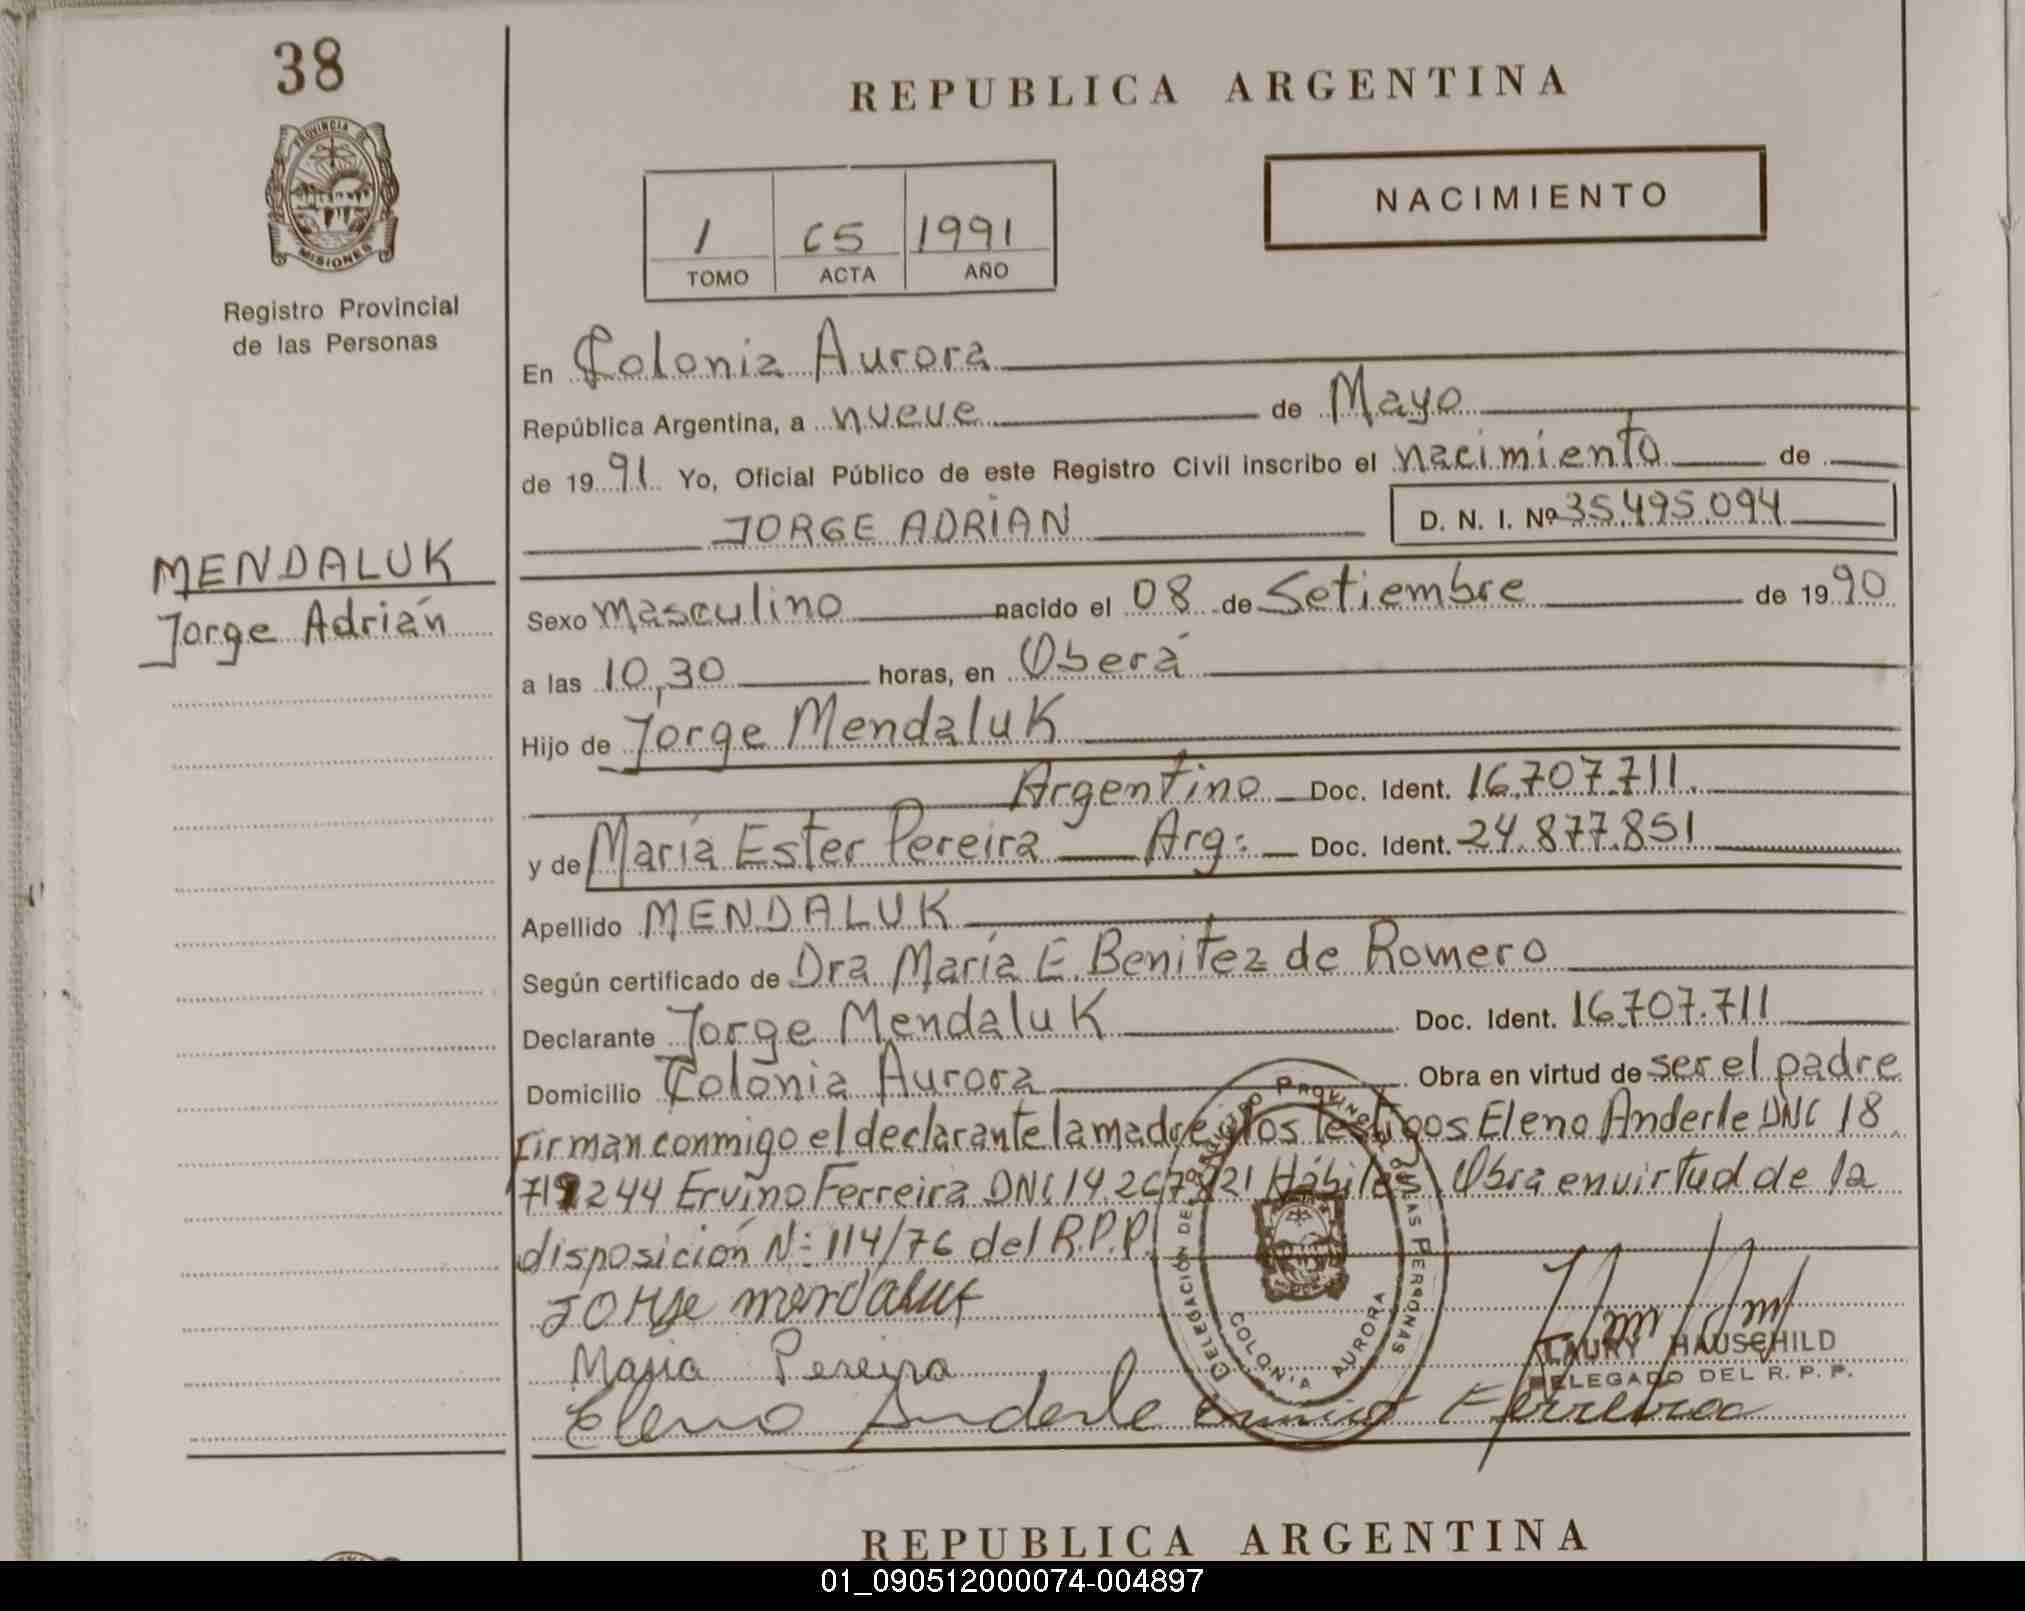 38
PROVINCIA DE
MISIONES
Registro Provincial
de las Personas
REPUBLICA ARGENTINA
NACIMIENTO
1 65 1991
TOMO ACTA AÑO
MENDALUK
Jorge Adrián
En Colonia Aurora
República Argentina, a nueve de Mayo
de 1991 Yo, Oficial Público de este Registro Civil inscribo el nacimiento de
JORGE ADRIAN D. N. I. Nº 35.495.094
Sexo masculino nacido el 08 de Setiembre de 1990
a las 10,30 horas, en Oberá
Hijo de Jorge Mendaluk
Argentino Doc. Ident. 16.707.711.
y de María Ester Pereira Arg: Doc. Ident. 24.877.851
Apellido MENDALUK
Según certificado de Dra María E. Benitez de Romero
Declarante Jorge Mendaluk Doc. Ident. 16.707.711
Domicilio Colonia Aurora Obra en virtud de ser el padre
Firman conmigo el declarante la madre y los testigos Eleno Anderle DNI 18.
719244 Ervino Ferreira DNI 14.267. Hábiles. Obra en virtud de la
disposición N: 114/76 del R.P.P.
JORge mendaluk
Maria Pereira
Eleno Anderle Ervino Ferreira
DELEGACION DEL REGISTRO PROVINCIAL DE LAS PERSONAS
COLONIA AURORA
LAURY HAUSCHILD
DELEGADO DEL R. P. P.
REPUBLICA ARGENTINA
01_090512000074-004897